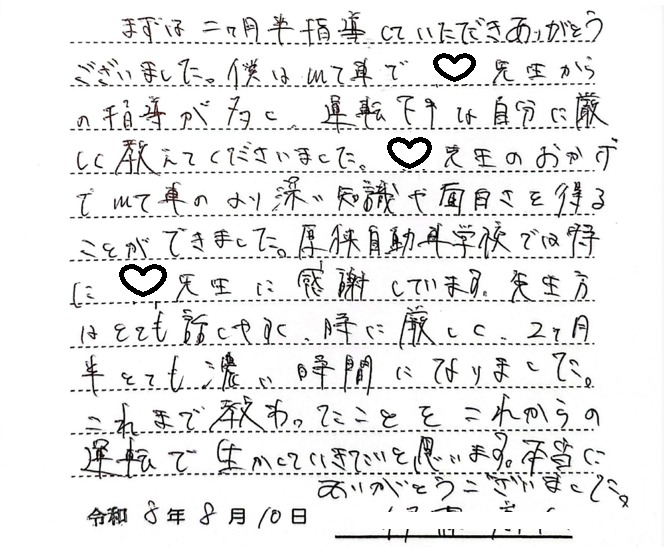 まずは二ヶ月半指導していただきありがとう
ございました。僕はMT車で ♡ 先生から
の指導が多く、運転下手な自分に厳
しく教えてくださいました。♡ 先生のおかげ
でMT車のより深い知識や面白さを得る
ことができました。厚狭自動車学校では特
に ♡ 先生に感謝しています。先生方
はとても話しやすく、時に厳しく、2ヶ月
半とても濃い時間になりました。
これまで教わったことをこれからの
運転で生かしていきたいと思います。本当に
ありがとうございました。
令和 8年 8月 10日